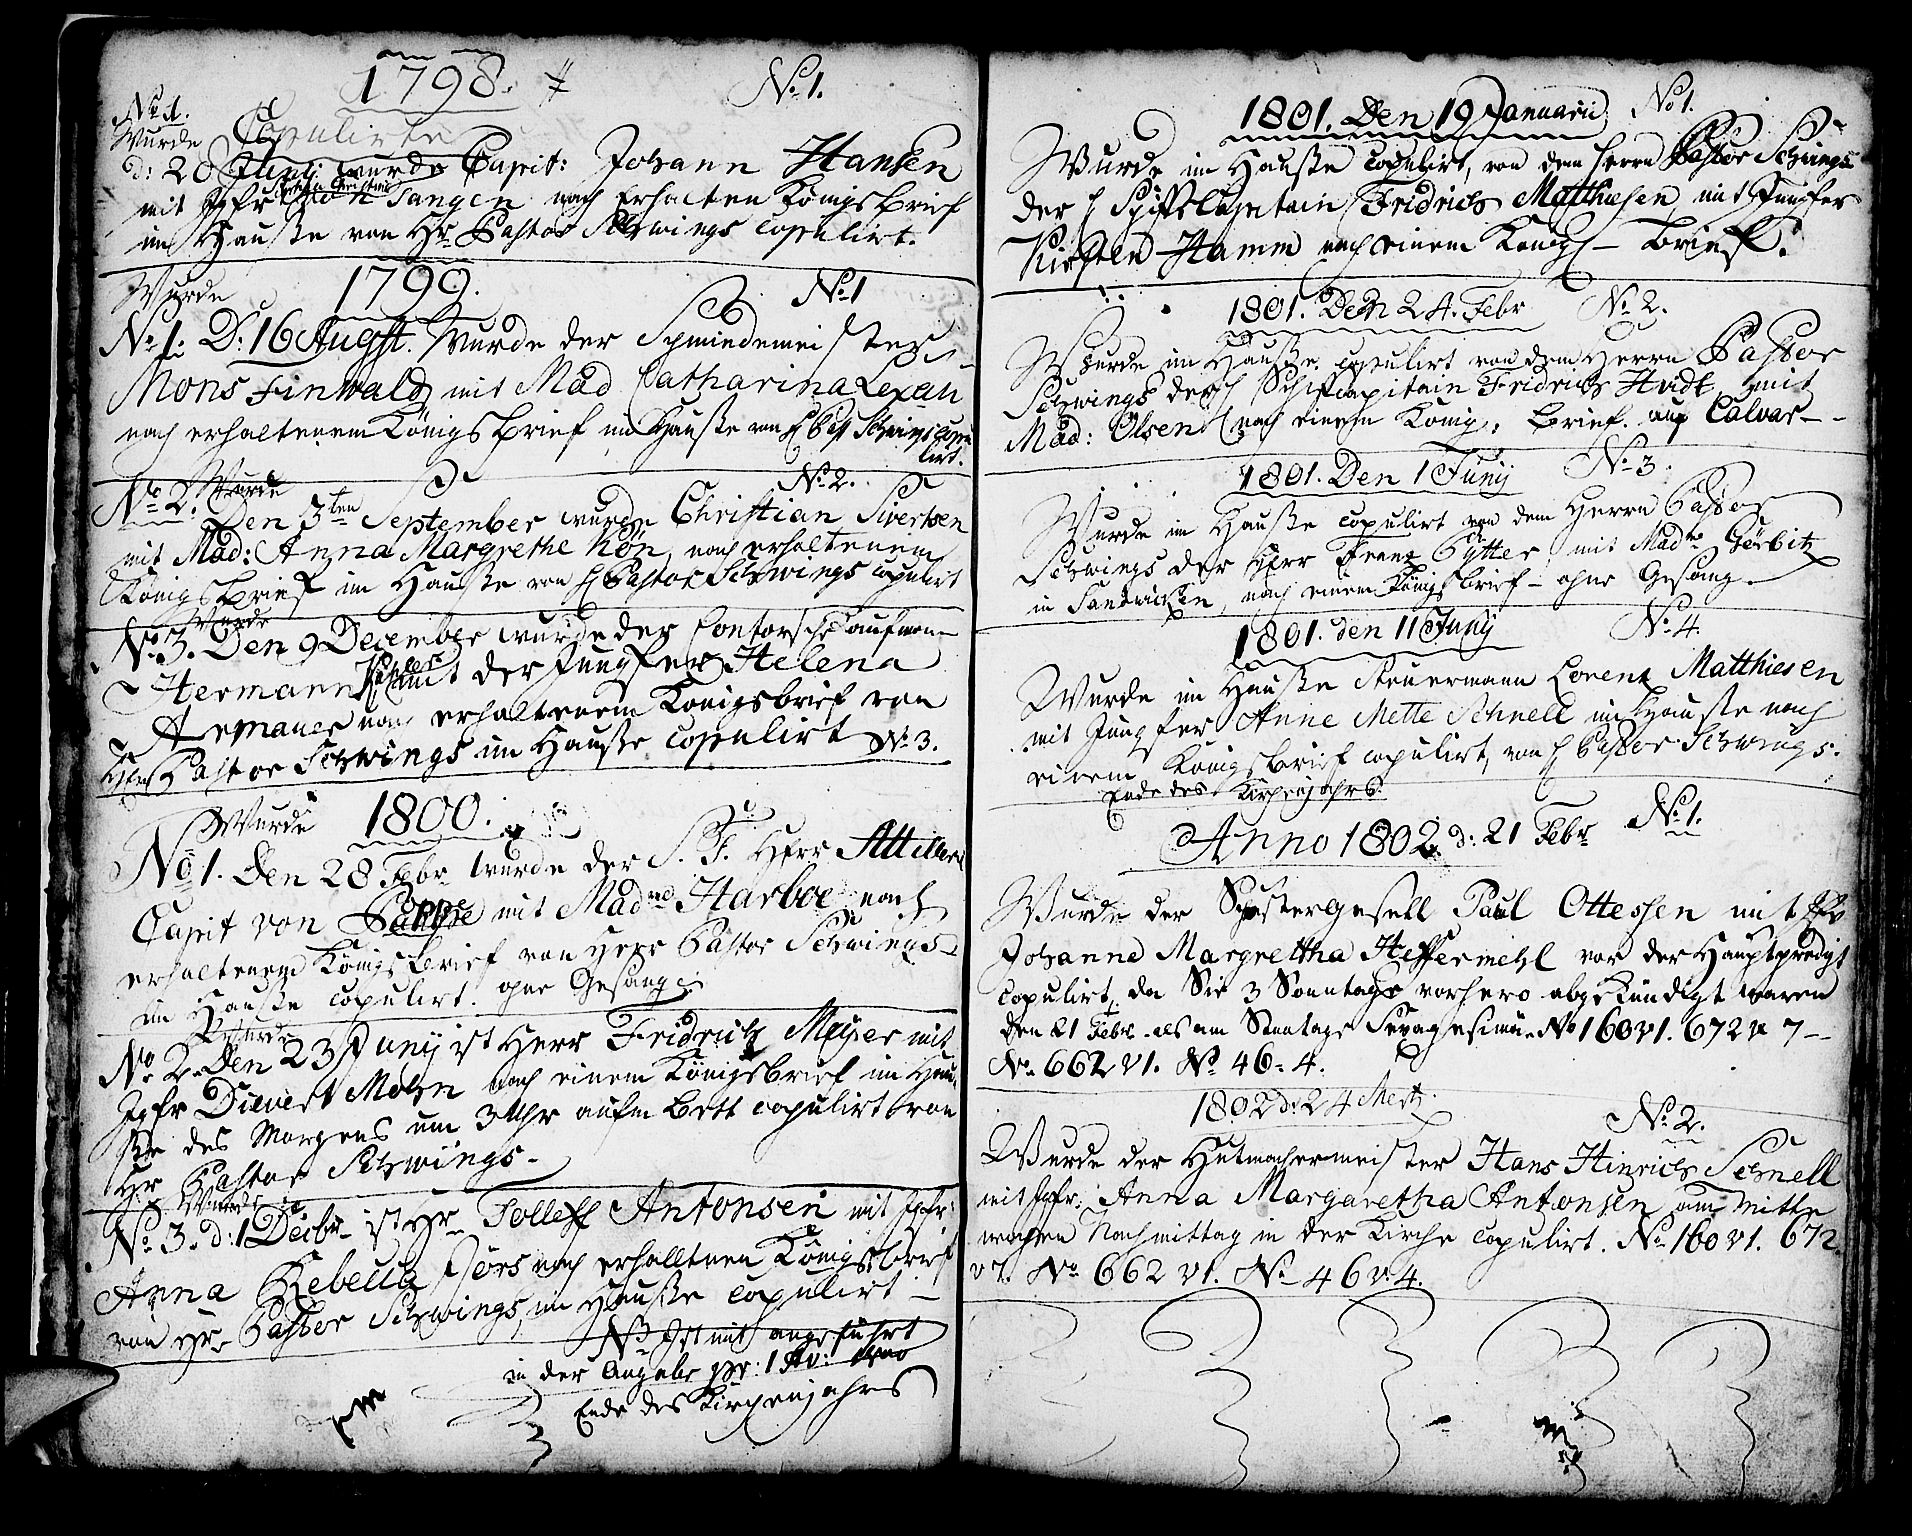 1798. No. 1.
No. 1.
Wurde Copulirte
d: 20 Junij wurde Capit: Johann Hansen
mit Jgfr von Tangen nach Erhalten Königsbrief
im Hause von Hr. Pastor Schwings copulirt.
Wurde 1799. No. 1
No 1. D. 16 Augst. Wurde der Schmiedemeister
Mons Finwald mit Mad Catharina Lexau
nach erhaltenem Königsbrief im Hause von H Past Schwings copu
lirt.
Wurde No. 2.
No. 2. Den 3ten September wurde Christian Sivertsen
mit Mad: Anna Margrethe Kön, nach erhaltenem
Königsbrief im Hause von H Pastor Schwings copulirt
Wurde
No. 3. Den 9 December wurde der Contorsche Kaufmann
Hermann mit der Jungfer Helena
Armauer nach erhaltenem Königsbrief von
Herrn Pastor Schwings im Hause copulirt No. 3.
Wurde 1800.
No 1. Den 28 Febr. wurde der S. T. Herr
Capit von mit Madme Harboe nach
erhaltenem Königsbrief von Herr Pastor Schwings
im Hause copulirt. ohne Gesang
Wurde
No. 2. Den 23 Junij ist Herr Fridrich Meyer mit
Jgfr Dievert Mohn nach einem Königsbrief im Hau-
se des Morgens um 3 Uhr aufm Bett copulirt von
Hr Pastor Schwings.
Wurde
No. 3. d: 1 Decbr. ist Hr. Tolleff Antonsen mit Jgfr:
Anna Rebecca Jörs nach erhalltnen Königsbrief
von Hr. Pastor Schwings, im Hause copulirt
N3 Ist mit angeführt
in der Angabe pr: 1
Ende des Kirchenjahrs
1801. Den 19 Januarii No 1.
Wurde im Hause copulirt, von dem Herrn Pastor Schwings
der H Schiffscapitain Fridrich Matthiesen, mit Jungfer
Kirsten Hamm nach einem Königl. Brief.
1801. Den 24. Febr No. 2.
Wurde im Hause copulirt von dem Herrn Pastor
Schwings der H Schifcapitain Fridrich Hvidt, mit
Mad: Olsen nach einem König. Brief. auf Calvar
1801. Den 1 Junij No. 3.
Wurde im Hause copulirt von dem Herrn Pastor
Schwings der Herr Franz Pytter mit Madme Görbitz
in Sandwicken, nach einem Königsbrief ohne Gesang.
1801. den 11 Junij No. 4.
Wurde im Hause Steuermann Lorentz Matthiesen
mit Jungfer Anne Mette Schnell im Hause nach
einem Königsbrief copulirt, von H Pastor Schwings.
Ende des Kirchenjahrs.
Anno 1802. d: 21 Febr No. 1.
Wurde der Schustergesell Paul Ottessen mit Jfr
Johanna Margretha Heffermehl vor der Hauptpredigt
copulirt, da Sie 3 Sonntage vorhero abgekündigt waren
den 21 Febr. als am Sontage No 160 v 1. 672 v 7
No. 662 v 1. No 46. 4.
1802 d: 24 Mertz. No. 2.
Wurde der Hutmachermeister Hans Hinrich Schnell
mit Jgfr: Anna Margaretha Antonsen am Mitte
wochen Nachmittag in der Kirche copulirt. No 160 v 1. 672.
v 7. No 662 v 1. No 46 v. 4.